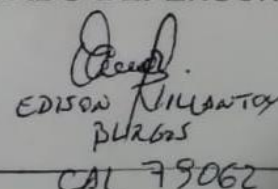 EDISON VILLANTOY
BURGOS
CAL 79062